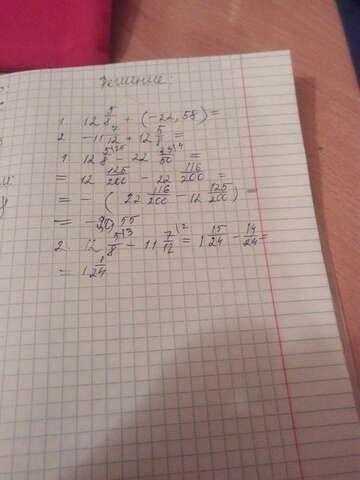 Решение:
1. 12 5/8 + (-22,58) =
2. -11 7/12 + 12 5/8 =
1. 12 5/8 \25 - 22 29/50 \4 =
= 12 125/200 - 22 116/200 =
= - ( 22 116/200 - 12 125/200 ) =
= - 55
2. 12 5/8 \3 - 11 7/12 \2 = 1 15/24 - 14/24 =
= 1 1/24